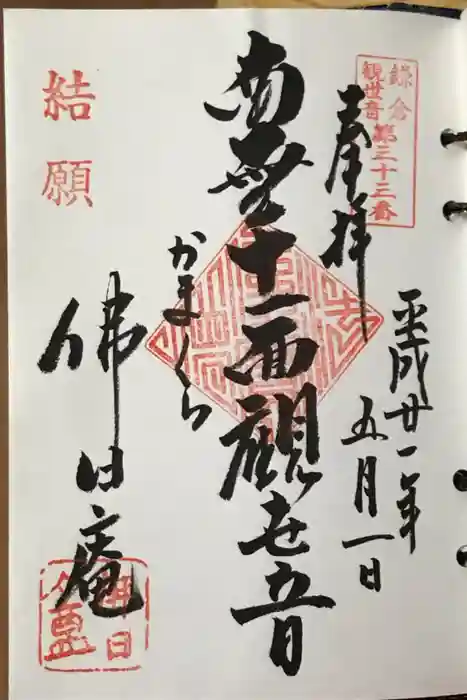 鎌倉
観世音第三十三番
奉拝
平成廿一年
五月一日
南無十一面観世音
かまくら
佛日庵
結願